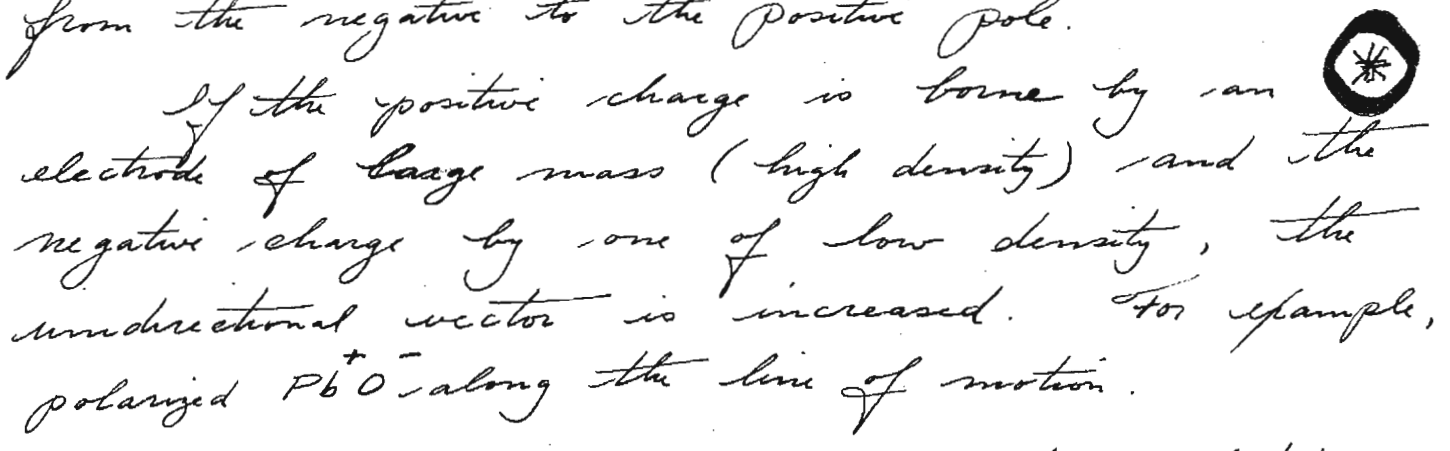 from the negative to the positive pole.
If the positive charge is borne by an
electrode of large mass (high density) and the
negative charge by one of low density, the
unidirectional vector is increased. For example,
polarized Pb⁺O⁻ along the line of motion.